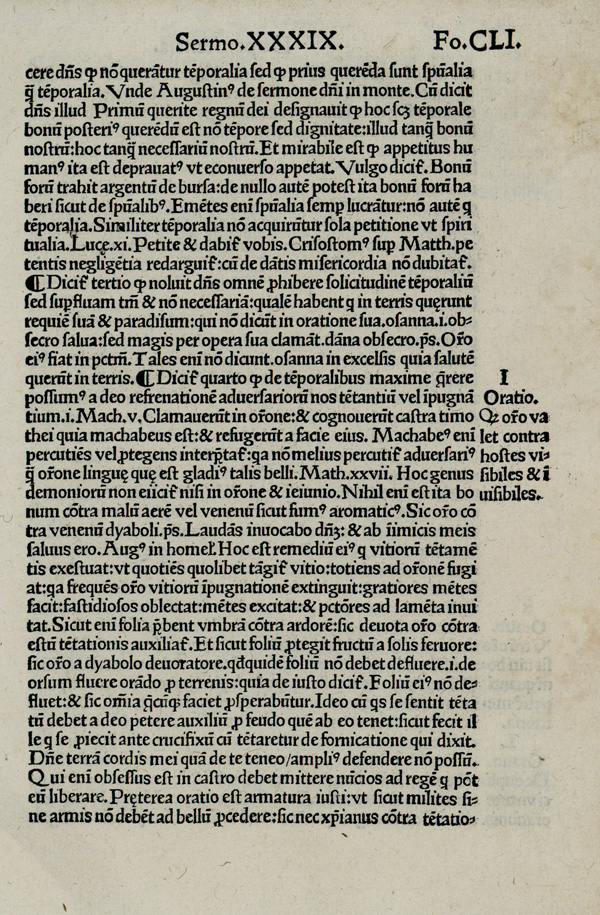 Sermo.XXXIX. Fo.CLI.
cere dñs ꝙ nõ querãtur tẽporalia sed ꝙ prius querẽda sunt spũalia
q̃ tẽporalia. Vnde Augustinꝰ de sermone dñi in monte. Cũ dicit
dñs illud Primũ querite regnũ dei designauit ꝙ hoc scꝫ tẽporale
bonũ posteriꝰ querẽdũ est nõ tẽpore sed dignitate: illud tanq̃ bonũ
nostrũ: hoc tanq̃ necessariũ nostrũ. Et mirabile est ꝙ appetitus hu
manꝰ ita est deprauatꝰ vt econuerso appetat. Vulgo dicit̃. Bonũ
forũ trahit argentũ de bursa: de nullo autẽ potest ita bonũ forũ ha
beri sicut de spũalibꝰ. Emẽtes eni spũalia semp lucrãtur: nõ autẽ q
tẽporalia. Similiter tẽporalia nõ acquirũtur sola petitione vt spiri
tualia. Lucę. xi. Petite & dabit̃ vobis. Crisostomꝰ sup Matth. pe
tentis negligẽtia redarguit̃: cũ de dãtis misericordia nõ dubitat̃.
¶ Dicit̃ tertio ꝙ noluit dñs omnẽ ꝓhibere solicitudinẽ tẽporaliũ
sed supfluam tm̃ & nõ necessariã: qualẽ habent q in terris quęrunt
requiẽ suã & paradisum: qui nõ dicũt in oratione sua. osanna. i. ob⸗
secro salua: sed magis per opera sua clamãt. dãna obsecro. ps̃. Oro̅
eiꝰ fiat in pctm̃. Tales eni nõ dicunt. osanna in excelsis quia salutẽ
querũt in terris. ¶ Dicit̃ quarto ꝙ de tẽporalibus maxime q̃rere
possumꝰ a deo refrenationẽ aduersariorũ nos tẽtantiũ vel ĩpugnã
tium. i. Mach. v. Clamauerũt in or̃one: & cognouerũt castra timo
thei quia machabeus est: & refugerũt a facie eius. Machabeꝰ eni
percutiẽs vel ꝓtegens interp̃tat̃: qa nõ melius percutit̃ aduersariꝰ
q̃ or̃one linguę quę est gladiꝰ talis belli. Math. xxvii. Hoc genus
demoniorũ non eiicit̃ nisi in or̃one & ieiunio. Nihil eni est ita bo
num cõtra malũ aerẽ vel venenũ sicut fumꝰ aromaticꝰ. Sic or̃o cõ
tra venenũ dyaboli. ps̃. Laudãs inuocabo dñꝫ: & ab ĩimicis meis
saluus ero. Augꝰ in homeł. Hoc est remediũ eiꝰ q vitiorũ tẽtamẽ
tis exestuat: vt quotiẽs quolibet tãgit̃ vitio: totiens ad or̃onẽ fugi
at: qa frequẽs or̃o vitiorũ ĩpugnationẽ extinguit: gratiores mẽtes
facit: fastidiosos oblectat: mẽtes excitat: & pctõres ad lamẽta inui
tat. Sicut eni folia p̃bent vmbrã cõtra ardorẽ: sic deuota or̃o cõtra
estũ tẽtationis auxiliat̃. Et sicut foliũ ꝓtegit fructũ a solis feruore:
sic or̃o a dyabolo deuoratore. qđquidẽ foliũ nõ debet defluere. i. de
orsum fluere orãdo ꝓ terrenis: quia de iusto dicit̃. Foliũ eiꝰ nõ de⸗
fluet: & sic om̃ia q̃cũqꝫ faciet ꝓsperabũtur. Ideo cũ qs se sentit tẽta
tũ debet a deo petere auxiliũ ꝓ feudo quẽ ab eo tenet: sicut fecit il
le q se ꝓiecit ante crucifixũ cũ tẽtaretur de fornicatione qui dixit.
Dñe terrã cordis mei quã de te teneo/ampliꝰ defendere nõ possũ.
Qui eni obsessus est in castro debet mittere nũcios ad regẽ q põt
eũ liberare. Pręterea oratio est armatura iusti: vt sicut milites si⸗
ne armis nõ debẽt ad bellũ ꝓcedere: sic nec xp̃ianus cõtra tẽtatio⸗
I
Oratio.
Qꝫ or̃o va
let contra
hostes vi⸗
sibiles & ĩ
uisibiles.